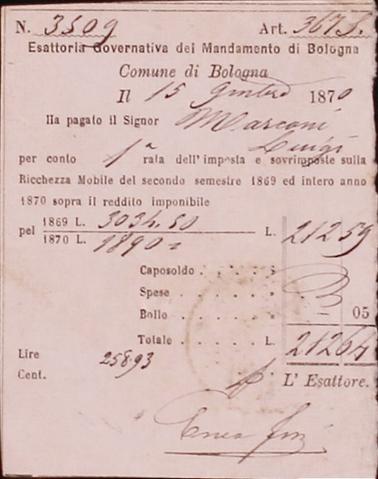 N. 3509 Art. 3675.
Esattoria Governativa del Mandamento di Bologna
Comune di Bologna
Il 15 1870
Ha pagato il Signor Marconi
Luigi
per conto 1ª rata dell'imposta e sovrimposte sulla
Ricchezza Mobile del secondo semestre 1869 ed intero anno
1870 sopra il reddito imponibile
pel 1869 L. 3034.50 L. 212 59
1870 L. 1890 =
Caposoldo . . . . $
Spese . . . . . .
Bollo . . . . . . 05
Totale . . L. 212 64
Lire 25893
Cent.
L' Esattore.